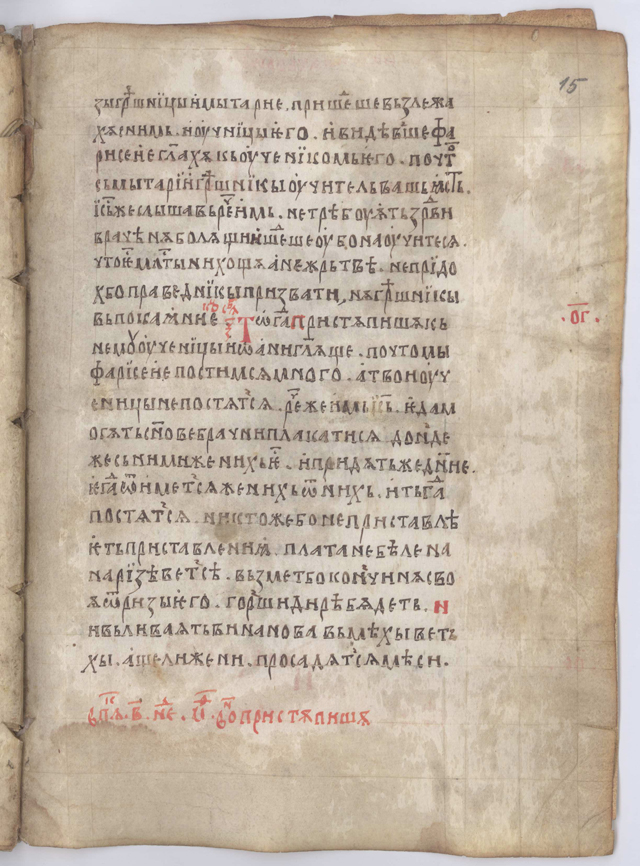 15
зыгрѣшнїцыимытарие. пришедшевъзлежа
хѫснимь. иоученїцыѥго. ивидѣвшефа
рисеиеглахѫкъоученїкомьѥго. почто
съмытарїигрѣшнїкыоучительвашьꙗсть.
їс҃жеслышавъречеимь. нетрѣбоуѫтьздрави
врачѣнѫболѧщиишедшеоубонаоучитесѧ.
чтоѥс҃млс҃тынихощѫанежрьтвѣ. непрїдо
хбоправеднїкыпризвати, нѫгрѣшнїкы
въпокаꙗние Тѡгдапристѫпишѫкь
немоуоученїцыиѡанигл҃ѧще. почтомы
фарїсеиепостимсѧмного. атвоиоуче
еницынепостѧтсѧ. речеимьїс҃ь. ѥдам
огѫтьсн҃овебрачниплакатисѧ. дондѣ
жесьнимиженихьѥс҃. ипридѫтьжедн҃ие.
ѥгдаѿиметсѧженихьѿнихь. итьгда
постѧтсѧ. никтожебонеприставлѣ
ѥтьприставлениꙗ. платанебѣлена
наризѣветсѣ. възметбокончинѫсво
ѫѿризыѥго. горшидирѣбѫдеть. н
ивьливаѫтьвинановавьмѣхыветъ
хы. ащелижени. просадѧтсѧмѣси.
·ог·
пристѫпишѫ